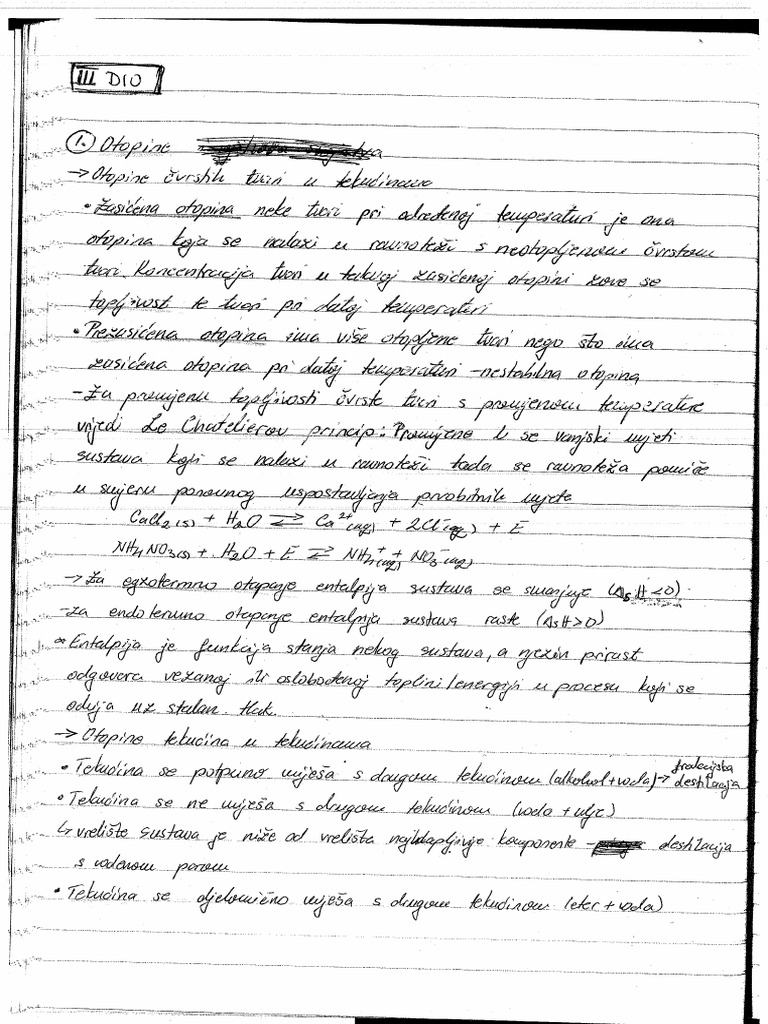 III DIO
1. Otopine
→ Otopine čvrstih tvari u tekućinama
• Zasićena otopina neke tvari pri određenoj temperaturi je ona
otopina koja se nalazi u ravnoteži s neotopljenom čvrstom
tvari. Koncentracija tvari u takvoj zasićenoj otopini zove se
topljivost te tvari pri datoj temperaturi
• Prezasićena otopina ima više otopljene tvari nego što ima
zasićena otopina pri datoj temperaturi - nestabilna otopina
- Za promjenu topljivosti čvrste tvari s promjenom temperature
vrijedi Le Chatelierov princip: Promijene li se vanjski uvjeti
sustava koji se nalazi u ravnoteži tada se ravnoteža pomiče
u smjeru ponovnog uspostavljanja prvobitnih uvjeta
CaCl2(s) + H2O ⇄ Ca2+(aq) + 2Cl-(aq) + E
NH4NO3(s) + H2O + E ⇄ NH4+(aq) + NO3-(aq)
→ Za egzotermno otapanje entalpija sustava se smanjuje (ΔsH<0).
- za endotermno otapanje entalpija sustava raste (ΔsH>0)
* Entalpija je funkcija stanja nekog sustava, a njezin prirast
odgovara vezanoj ili oslobođenoj toplini/energiji u procesu koji se
odvija uz stalan tlak.
→ Otopine tekućina u tekućinama
• Tekućina se potpuno miješa s drugom tekućinom (alkohol+voda) → frakcijska destilacija
• Tekućina se ne miješa s drugom tekućinom (voda + ulje)
↳ vrelište sustava je niže od vrelišta najhlapljivije komponente - destilacija
s vodenom parom
• Tekućina se djelomično miješa s drugom tekućinom (eter + voda)